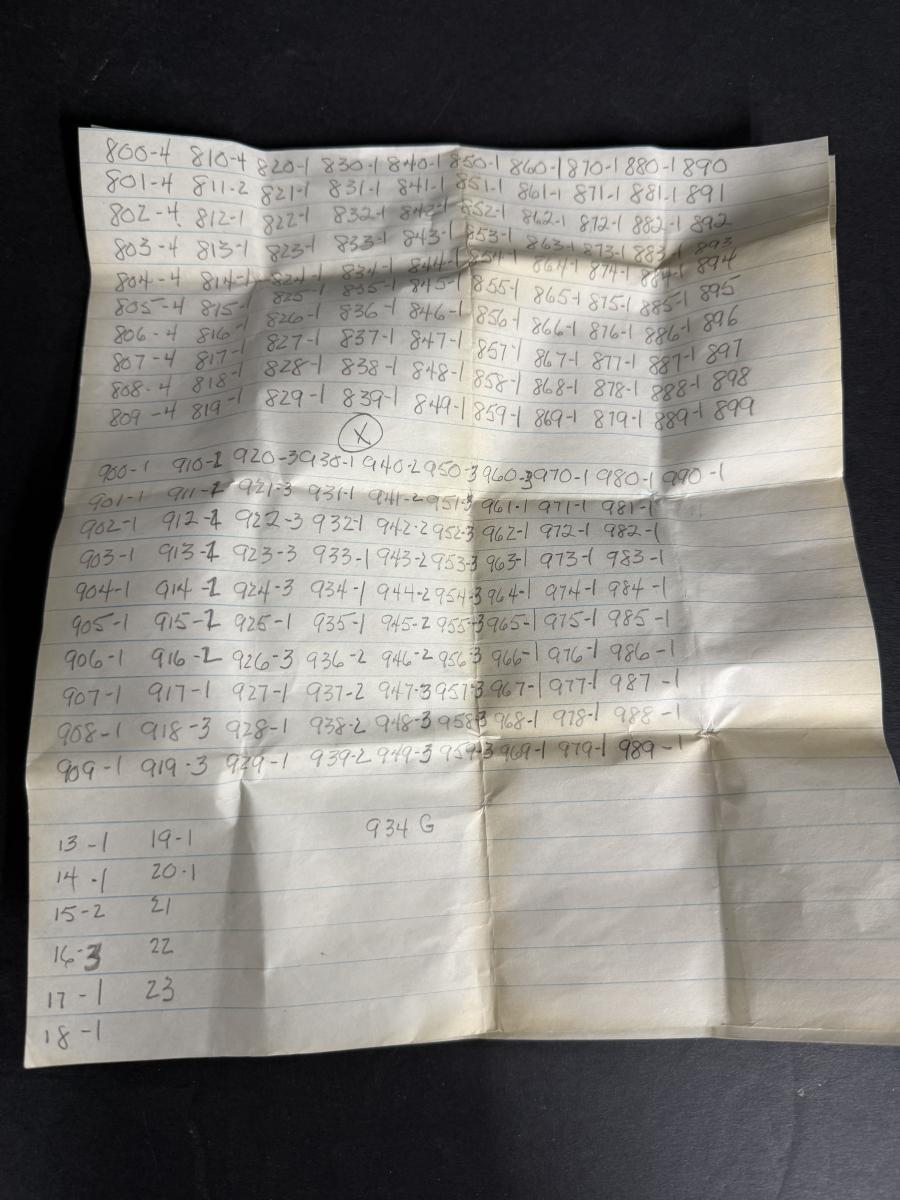 800-4 810-4 820-1 830-1 840-1 850-1 860-1 870-1 880-1 890
801-4 811-2 821-1 831-1 841-1 851-1 861-1 871-1 881-1 891
802-4 812-1 822-1 832-1 842-1 852-1 862-1 872-1 882-1 892
803-4 813-1 823-1 833-1 843-1 853-1 863-1 873-1 883-1 893
804-4 814-1 824-1 834-1 844-1 854-1 864-1 874-1 884-1 894
805-4 815-1 825-1 835-1 845-1 855-1 865-1 875-1 885-1 895
806-4 816-1 826-1 836-1 846-1 856-1 866-1 876-1 886-1 896
807-4 817-1 827-1 837-1 847-1 857-1 867-1 877-1 887-1 897
808-4 818-1 828-1 838-1 848-1 858-1 868-1 878-1 888-1 898
809-4 819-1 829-1 839-1 849-1 859-1 869-1 879-1 889-1 899
X
900-1 910-2 920-3 930-1 940-2 950-3 960-3 970-1 980-1 990-1
901-1 911-2 921-3 931-1 941-2 951-3 961-1 971-1 981-1
902-1 912-2 922-3 932-1 942-2 952-3 962-1 972-1 982-1
903-1 913-2 923-3 933-1 943-2 953-3 963-1 973-1 983-1
904-1 914-2 924-3 934-1 944-2 954-3 964-1 974-1 984-1
905-1 915-2 925-1 935-1 945-2 955-3 965-1 975-1 985-1
906-1 916-2 926-3 936-2 946-2 956-3 966-1 976-1 986-1
907-1 917-1 927-1 937-2 947-3 957-3 967-1 977-1 987-1
908-1 918-3 928-1 938-2 948-3 958-3 968-1 978-1 988-1
909-1 919-3 929-1 939-2 949-3 959-3 969-1 979-1 989-1
934 G
13-1 19-1
14-1 20-1
15-2 21
16-3 22
17-1 23
18-1